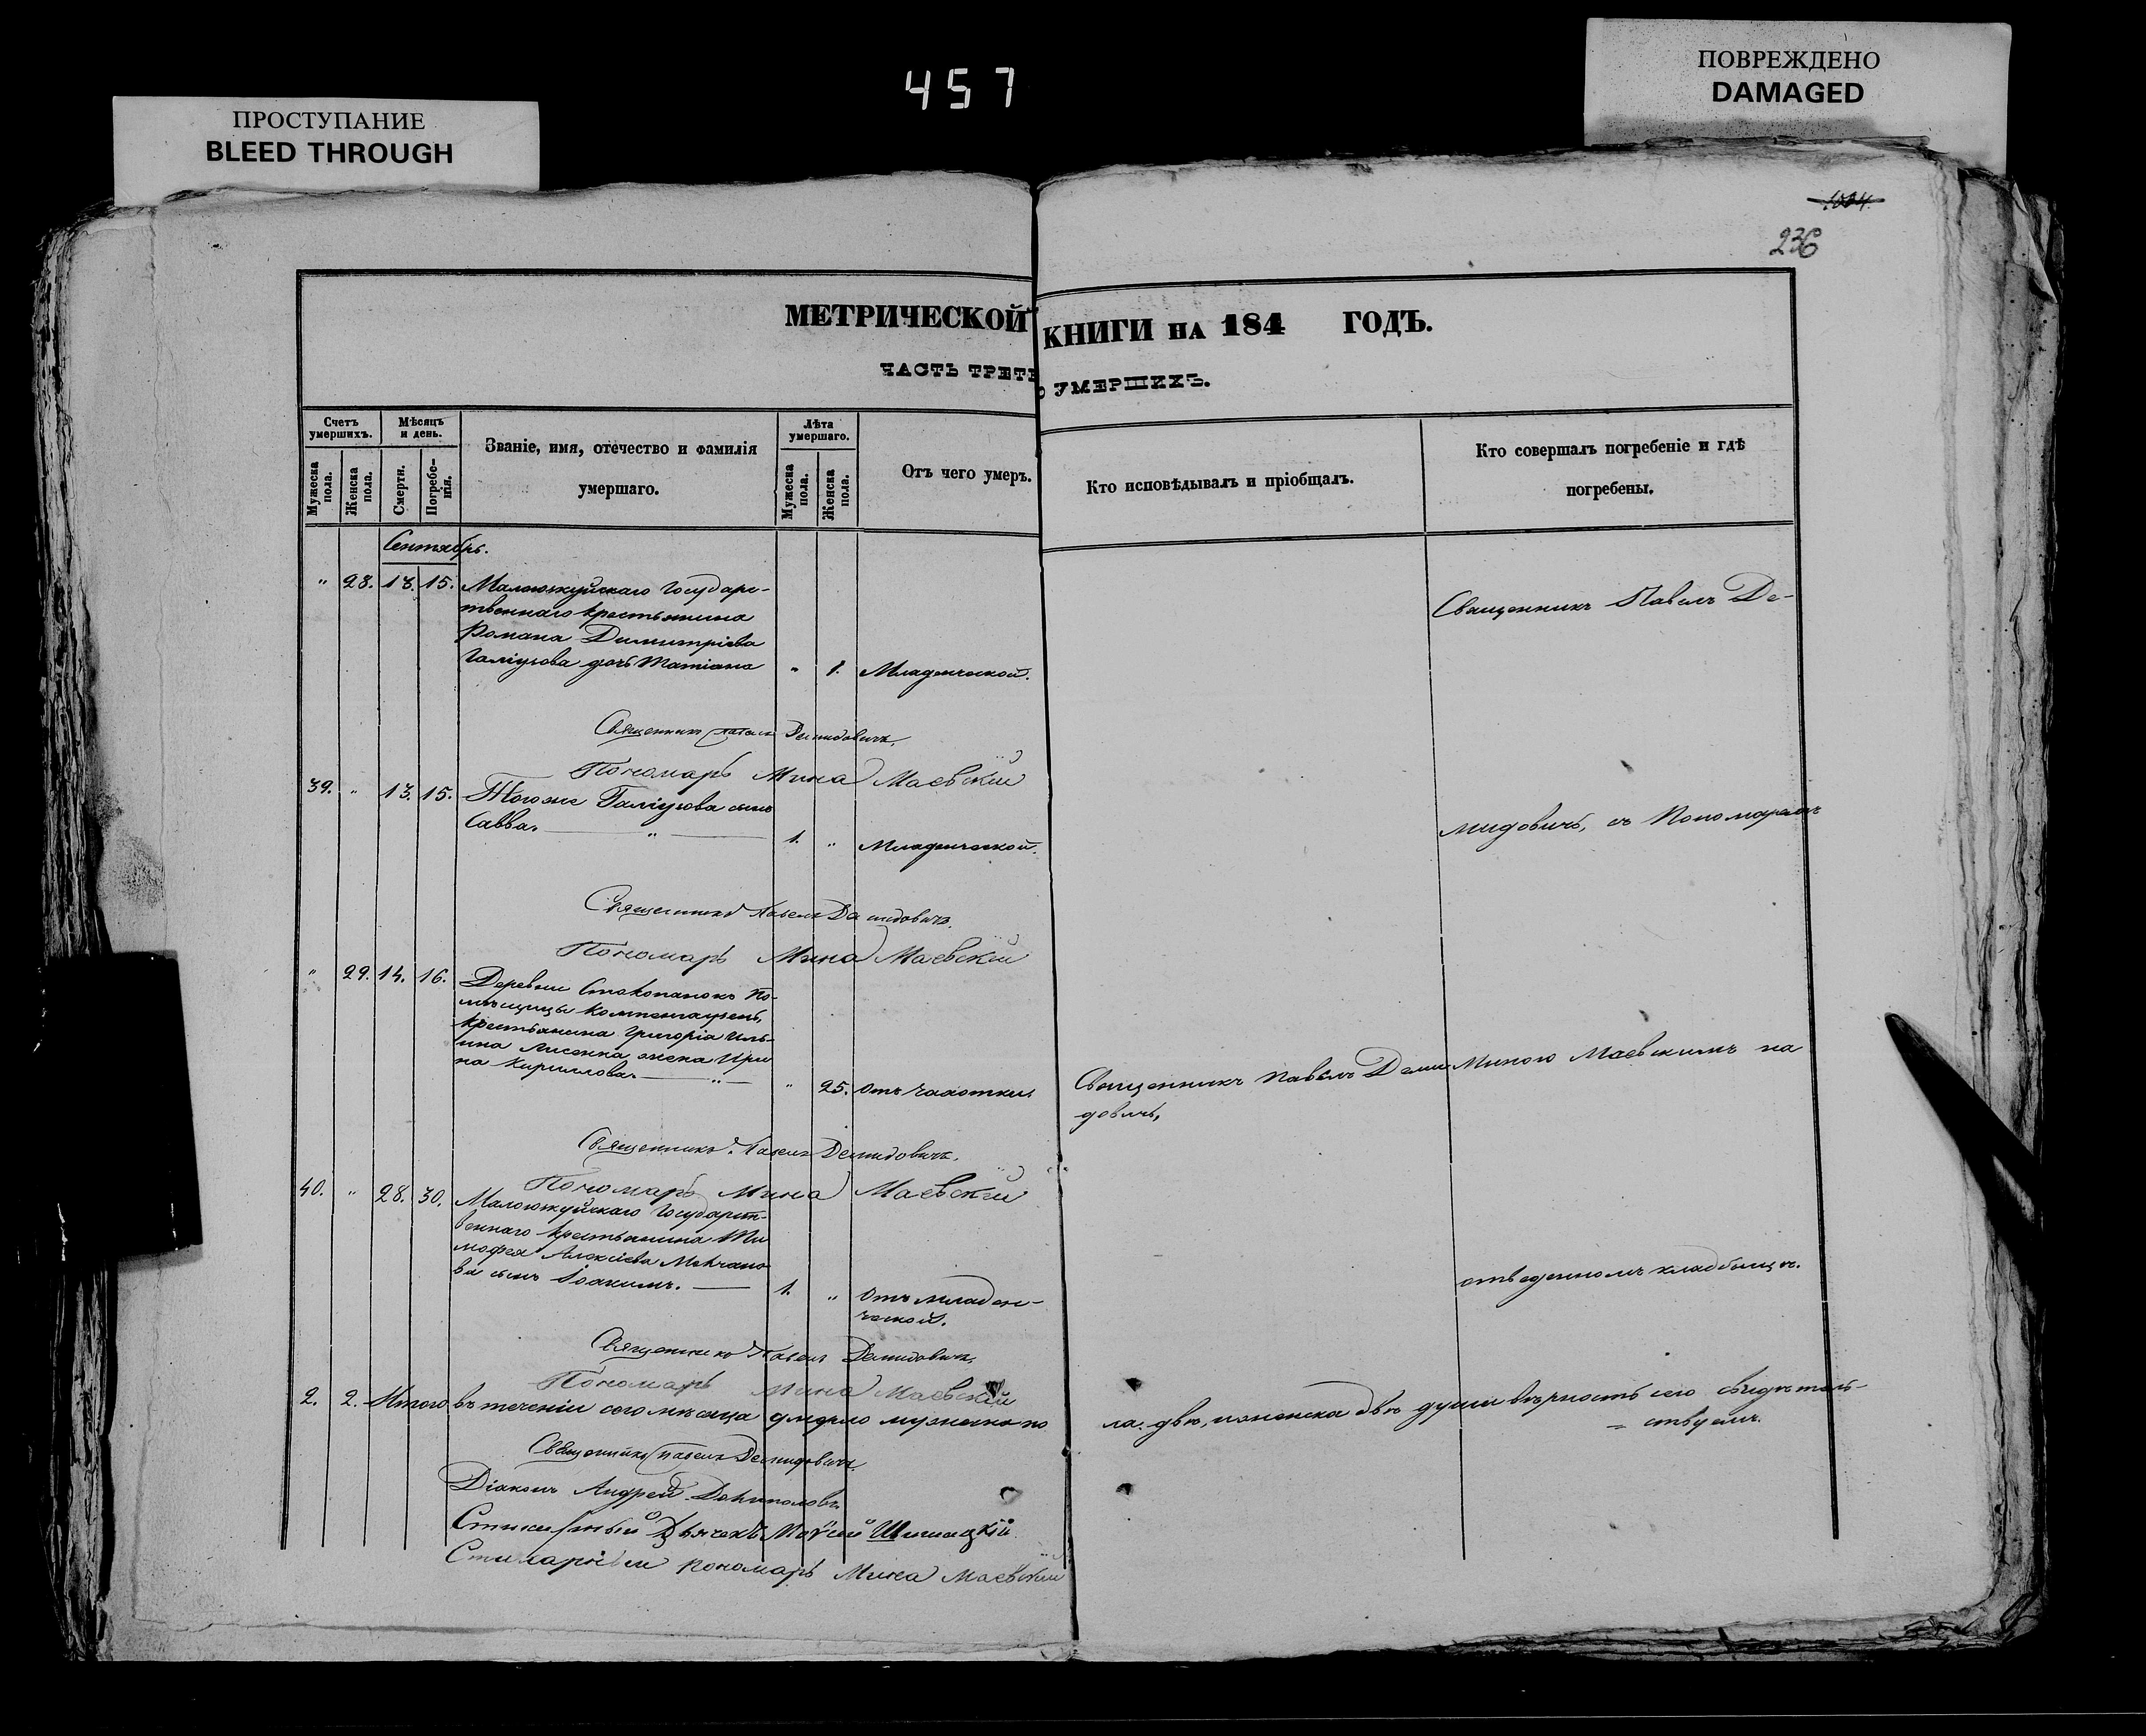 457
ПРОСТУПАНИЕ
BLEED THROUGH
ПОВРЕЖДЕНО
DAMAGED
1004.
236
МЕТРИЧЕСКОЙ КНИГИ НА 184 ГОДЪ.
ЧАСТЬ ТРЕТЬ О УМЕРШИХЪ.
Счетъ умершихъ.
Мѣсяцъ и день.
Званіе, имя, отечество и фамилія умершаго.
Лѣта умершаго.
Отъ чего умеръ.
Кто исповѣдывалъ и пріобщалъ.
Кто совершалъ погребеніе и гдѣ погребены.
Мужеска пола.
Женска пола.
Смерти.
Погребенія.
Мужеска пола.
Женска пола.
Сентябрь.
" 28. 13. 15. Государс-
твеннаго крестьянина
Романа Димитріева
дочь Татіана " 1. Младенческой.
Священникъ Павелъ Де-
Священникъ Павелъ Демидовичъ.
Пономарь Мина Маевскій
39. " 13. 15. Тогоже сынъ
Савва. " 1. " Младенческой.
мидовичъ, съ Пономаремъ
Священникъ Павелъ Демидовичъ.
Пономарь Мина Маевскій
" 29. 14. 16. Деревни По-
мѣщицы
крестьянина Григорія Иль-
ина Лисенка жена Ири
на Кириллова. " " 25. отъ чахотки
Священникъ Павелъ Деми
довичъ,
Миною Маевскимъ на
Священникъ Павелъ Демидовичъ.
Пономарь Мина Маевскій
40. " 28. 30. Государст-
веннаго крестьянина Ти
мофея Алексіева
ва сынъ Іоакимъ. 1. " отъ младен-
ческой.
отведенномъ кладбищѣ.
Священникъ Павелъ Демидовичъ.
Пономарь Мина Маевскій
2. 2. Итого въ теченіи сего мѣсяца умерло мужеска по
ла двѣ, и женска двѣ души вѣрность сего свидѣтель-
= ствуемъ.
Священникъ Павелъ Демидовичъ.
Діаконъ Андрей
Стихарный Дьячекъ
Стихарный пономарь Мина Маевскій